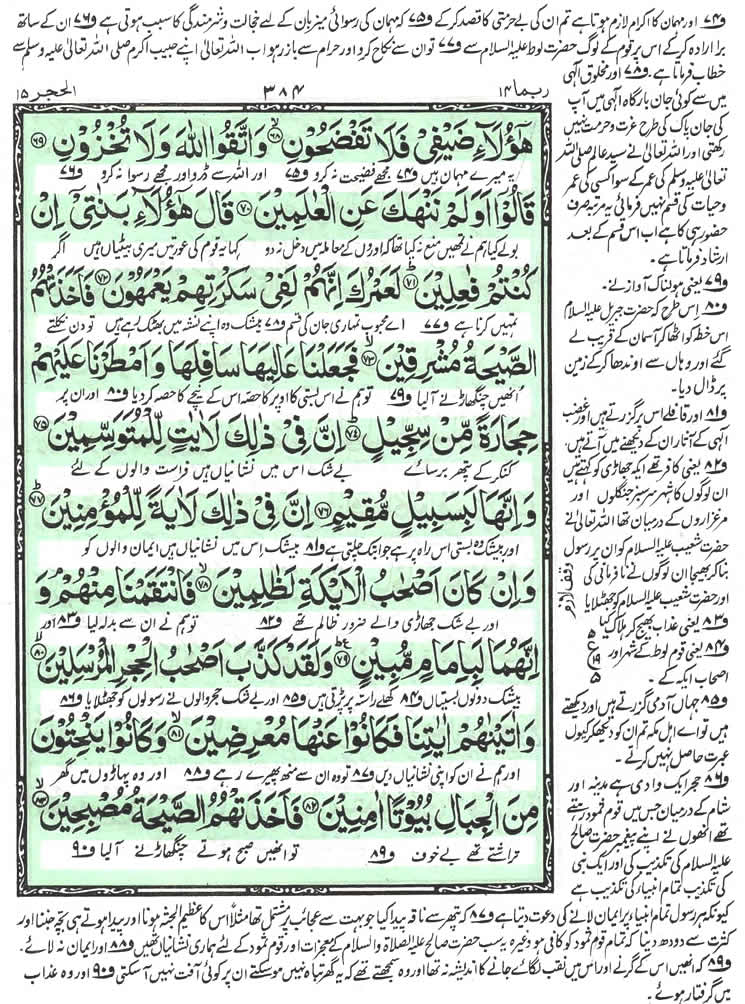 و۷۴ اور مہمان کا اکرام لازم ہوتا ہے تم ان کی بے حرمتی کا قصد کر کے و۷۵ کہ مہمان کی رسوائی میزبان کے لئے خجالت و شرمندگی کا سبب ہوتی ہے و۷۶ ان کے ساتھ
برا ارادہ کر کے اس پر قوم کے لوگ حضرت لوط علیہ السلام سے و۷۷ تو ان سے نکاح کرو اور حرام سے باز رہو اب اللہ تعالیٰ اپنے حبیب اکرم صلی اللہ تعالیٰ علیہ وسلم سے
خطاب فرماتا ہے۔ و۷۸ اور مخلوق الٰہی
میں سے کوئی جان بارگاہ الٰہی میں آپ
کی جان پاک کی طرح عزت و حرمت نہیں
رکھتی اور اللہ تعالیٰ نے سید عالم صلی اللہ
تعالیٰ علیہ وسلم کی عمر کے سوا کسی کی عمر
و حیات کی قسم نہیں فرمائی یہ مرتبہ صرف
حضور ہی کا ہے اب اس قسم کے بعد
ارشاد فرماتا ہے۔
و۷۹ یعنی ہولناک آواز نے۔
و۸۰ اس طرح کہ حضرت جبریل علیہ السلام
اس خطہ کو اٹھا کر آسمان کے قریب لے
گئے اور وہاں سے اوندھا کر کے زمین
پر ڈال دیا۔
و۸۱ اور قافلے اس پر گزرتے ہیں اور غضب
الٰہی کے آثار ان کے دیکھنے میں آتے ہیں۔
و۸۲ یعنی کافر تھے ایکہ جھاڑی کو کہتے ہیں
ان لوگوں کا شہر سرسبز جنگلوں اور
مرغزاروں کے درمیان تھا اللہ تعالیٰ نے
حضرت شعیب علیہ السلام کو ان پر رسول
بنا کر بھیجا ان لوگوں نے نافرمانی کی
اور حضرت شعیب علیہ السلام کو جھٹلایا
و۸۳ یعنی عذاب بھیج کر ہلاک کیا
و۸۴ یعنی قوم لوط کے شہر اور
اصحاب ایکہ کے۔
و۸۵ جہاں آدمی گزرتے ہیں اور دیکھتے
ہیں تو اے اہل مکہ تم ان کو دیکھ کر کیوں
عبرت حاصل نہیں کرتے۔
و۸۶ حجر ایک وادی ہے مدینہ اور
شام کے درمیان جس میں قوم ثمود رہتے
تھے انھوں نے اپنے پیغمبر حضرت صالح
علیہ السلام کی تکذیب کی اور ایک نبی
کی تکذیب تمام انبیاء کی تکذیب ہے
ربما ۱۴
۳۸۴
الحجر ۱۵
هٰۤؤُلَآءِ ضَيْفِیْ فَلَا تَفْضَحُوْنِ ۶۸ وَاتَّقُوا اللّٰهَ وَلَا تُخْزُوْنِ ۶۹
یہ میرے مہمان ہیں و۷۴ مجھے فضیحت نہ کرو و۷۵ اور اللہ سے ڈرو اور مجھے رسوا نہ کرو و۷۶
قَالُوْۤا اَوَلَمْ نَنْهَكَ عَنِ الْعٰلَمِيْنَ ۷۰ قَالَ هٰۤؤُلَآءِ بَنٰتِیْۤ اِنْ
بولے کیا ہم نے تمھیں منع نہ کیا تھا کہ اوروں کے معاملہ میں دخل نہ دو کہا یہ قوم کی عورتیں میری بیٹیاں ہیں اگر
كُنْتُمْ فٰعِلِيْنَ ۷۱ لَعَمْرُكَ اِنَّهُمْ لَفِیْ سَكْرَتِهِمْ يَعْمَهُوْنَ ۷۲ فَاَخَذَتْهُمُ
تمہیں کرنا ہے و۷۷ اے محبوب تمہاری جان کی قسم و۷۸ بیشک وہ اپنے نشہ میں بھٹک رہے ہیں تو دن نکلتے
الصَّيْحَةُ مُشْرِقِيْنَ ۷۳ فَجَعَلْنَا عَالِيَهَا سَافِلَهَا وَاَمْطَرْنَا عَلَيْهِمْ
انھیں چنگھاڑ نے آلیا و۷۹ تو ہم نے اس بستی کا اوپر کا حصہ اس کے نیچے کا حصہ کر دیا و۸۰ اور ان پر
حِجَارَةً مِّنْ سِجِّيْلٍ ۷۴ اِنَّ فِیْ ذٰلِكَ لَاٰيٰتٍ لِّلْمُتَوَسِّمِيْنَ ۷۵
کنکر کے پتھر برسائے بے شک اس میں نشانیاں ہیں فراست والوں کے لئے
وَاِنَّهَا لَبِسَبِيْلٍ مُّقِيْمٍ ۷۶ اِنَّ فِیْ ذٰلِكَ لَاٰيَةً لِّلْمُؤْمِنِيْنَ ۷۷
اور بیشک وہ بستی اس راہ پر ہے جو اب تک چلتی ہے و۸۱ بیشک اس میں نشانیاں ہیں ایمان والوں کو
وَاِنْ كَانَ اَصْحٰبُ الْاَيْكَةِ لَظٰلِمِيْنَ ۷۸ فَانْتَقَمْنَا مِنْهُمْ وَ
اور بے شک جھاڑی والے ضرور ظالم تھے و۸۲ تو ہم نے ان سے بدلہ لیا و۸۳ اور
اِنَّهُمَا لَبِاِمَامٍ مُّبِيْنٍ ۷۹ وَلَقَدْ كَذَّبَ اَصْحٰبُ الْحِجْرِ الْمُرْسَلِيْنَ ۸۰
بیشک دونوں بستیاں و۸۴ کھلے راستہ پر پڑتی ہیں و۸۵ اور بے شک حجر والوں نے رسولوں کو جھٹلایا و۸۶
وَاٰتَيْنٰهُمْ اٰيٰتِنَا فَكَانُوْا عَنْهَا مُعْرِضِيْنَ ۸۱ وَكَانُوْا يَنْحِتُوْنَ
اور ہم نے ان کو اپنی نشانیاں دیں و۸۷ تو وہ ان سے منھ پھیرے رہے و۸۸ اور وہ پہاڑوں میں گھر
مِنَ الْجِبَالِ بُيُوْتًا اٰمِنِيْنَ ۸۲ فَاَخَذَتْهُمُ الصَّيْحَةُ مُصْبِحِيْنَ ۸۳
تراشتے تھے بے خوف و۸۹ تو انھیں صبح ہوتے چنگھاڑ نے آلیا و۹۰
وقف لازم
۵
ع
۱۹
۵
کیونکہ ہر رسول تمام انبیاء پر ایمان لانے کی دعوت دیتا ہے و۸۷ کہ پتھر سے ناقہ پیدا کیا جو بہت سے عجائب پر مشتمل تھا مثلاً اس کا عظیم الجثہ ہونا اور پیدا ہوتے ہی بچہ جننا اور
کثرت سے دودھ دینا کہ تمام قوم ثمود کو کافی ہو وغیرہ یہ سب حضرت صالح علیہ الصلاۃ والسلام کے معجزات اور قوم ثمود کے لئے ہماری نشانیاں تھیں و۸۸ اور ایمان نہ لائے۔
و۸۹ کہ انھیں اس کے گرنے اور اس میں نقب لگائے جانے کا اندیشہ نہ تھا اور وہ سمجھتے تھے کہ یہ گھر تباہ نہیں ہو سکتے ان پر کوئی آفت نہیں آسکتی و۹۰ اور وہ عذاب
میں گرفتار ہوئے۔